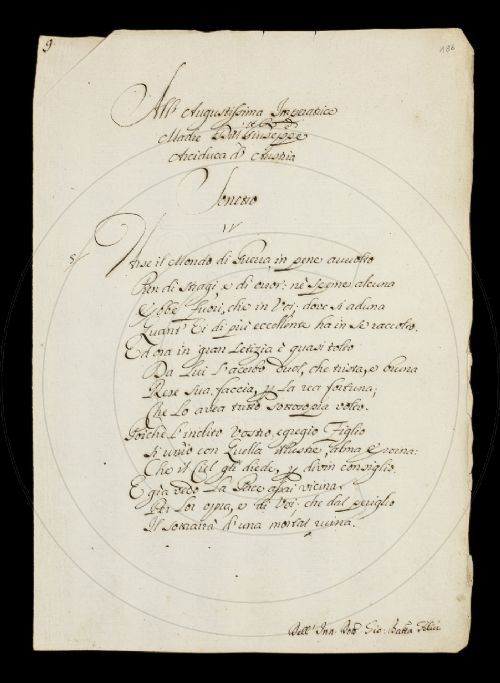 9.
186
All' Augustissima Imperatrice
Madre
Arciduca d'Austria
Sonetto
IV
Visse il Mondo di Guerra in pene auuolto
Pien di Stragi, e di orror: nè speme alcuna
Ebbe fuori, che in Voi; dove si aduna
Quant' Ei di più eccellente ha in se raccolto.
Ed ora in gran Letizia è quasi tolto
Da Lui l'acerbo duol, che trista, e bruna
Rese sua faccia, p la rea fortuna;
Che lo avea tutto sottosopra volto.
Poichè l'inclito Vostro egregio Figlio
Si unìo con Quella illustre, alma
Che il Ciel gli diede, p divin consiglio.
E già vedo la Pace assai vicina
Per lor oppra, e di Voi: che dal periglio
Il sottrarrà d'una mortal ruina.
Dell' Gio: Batta